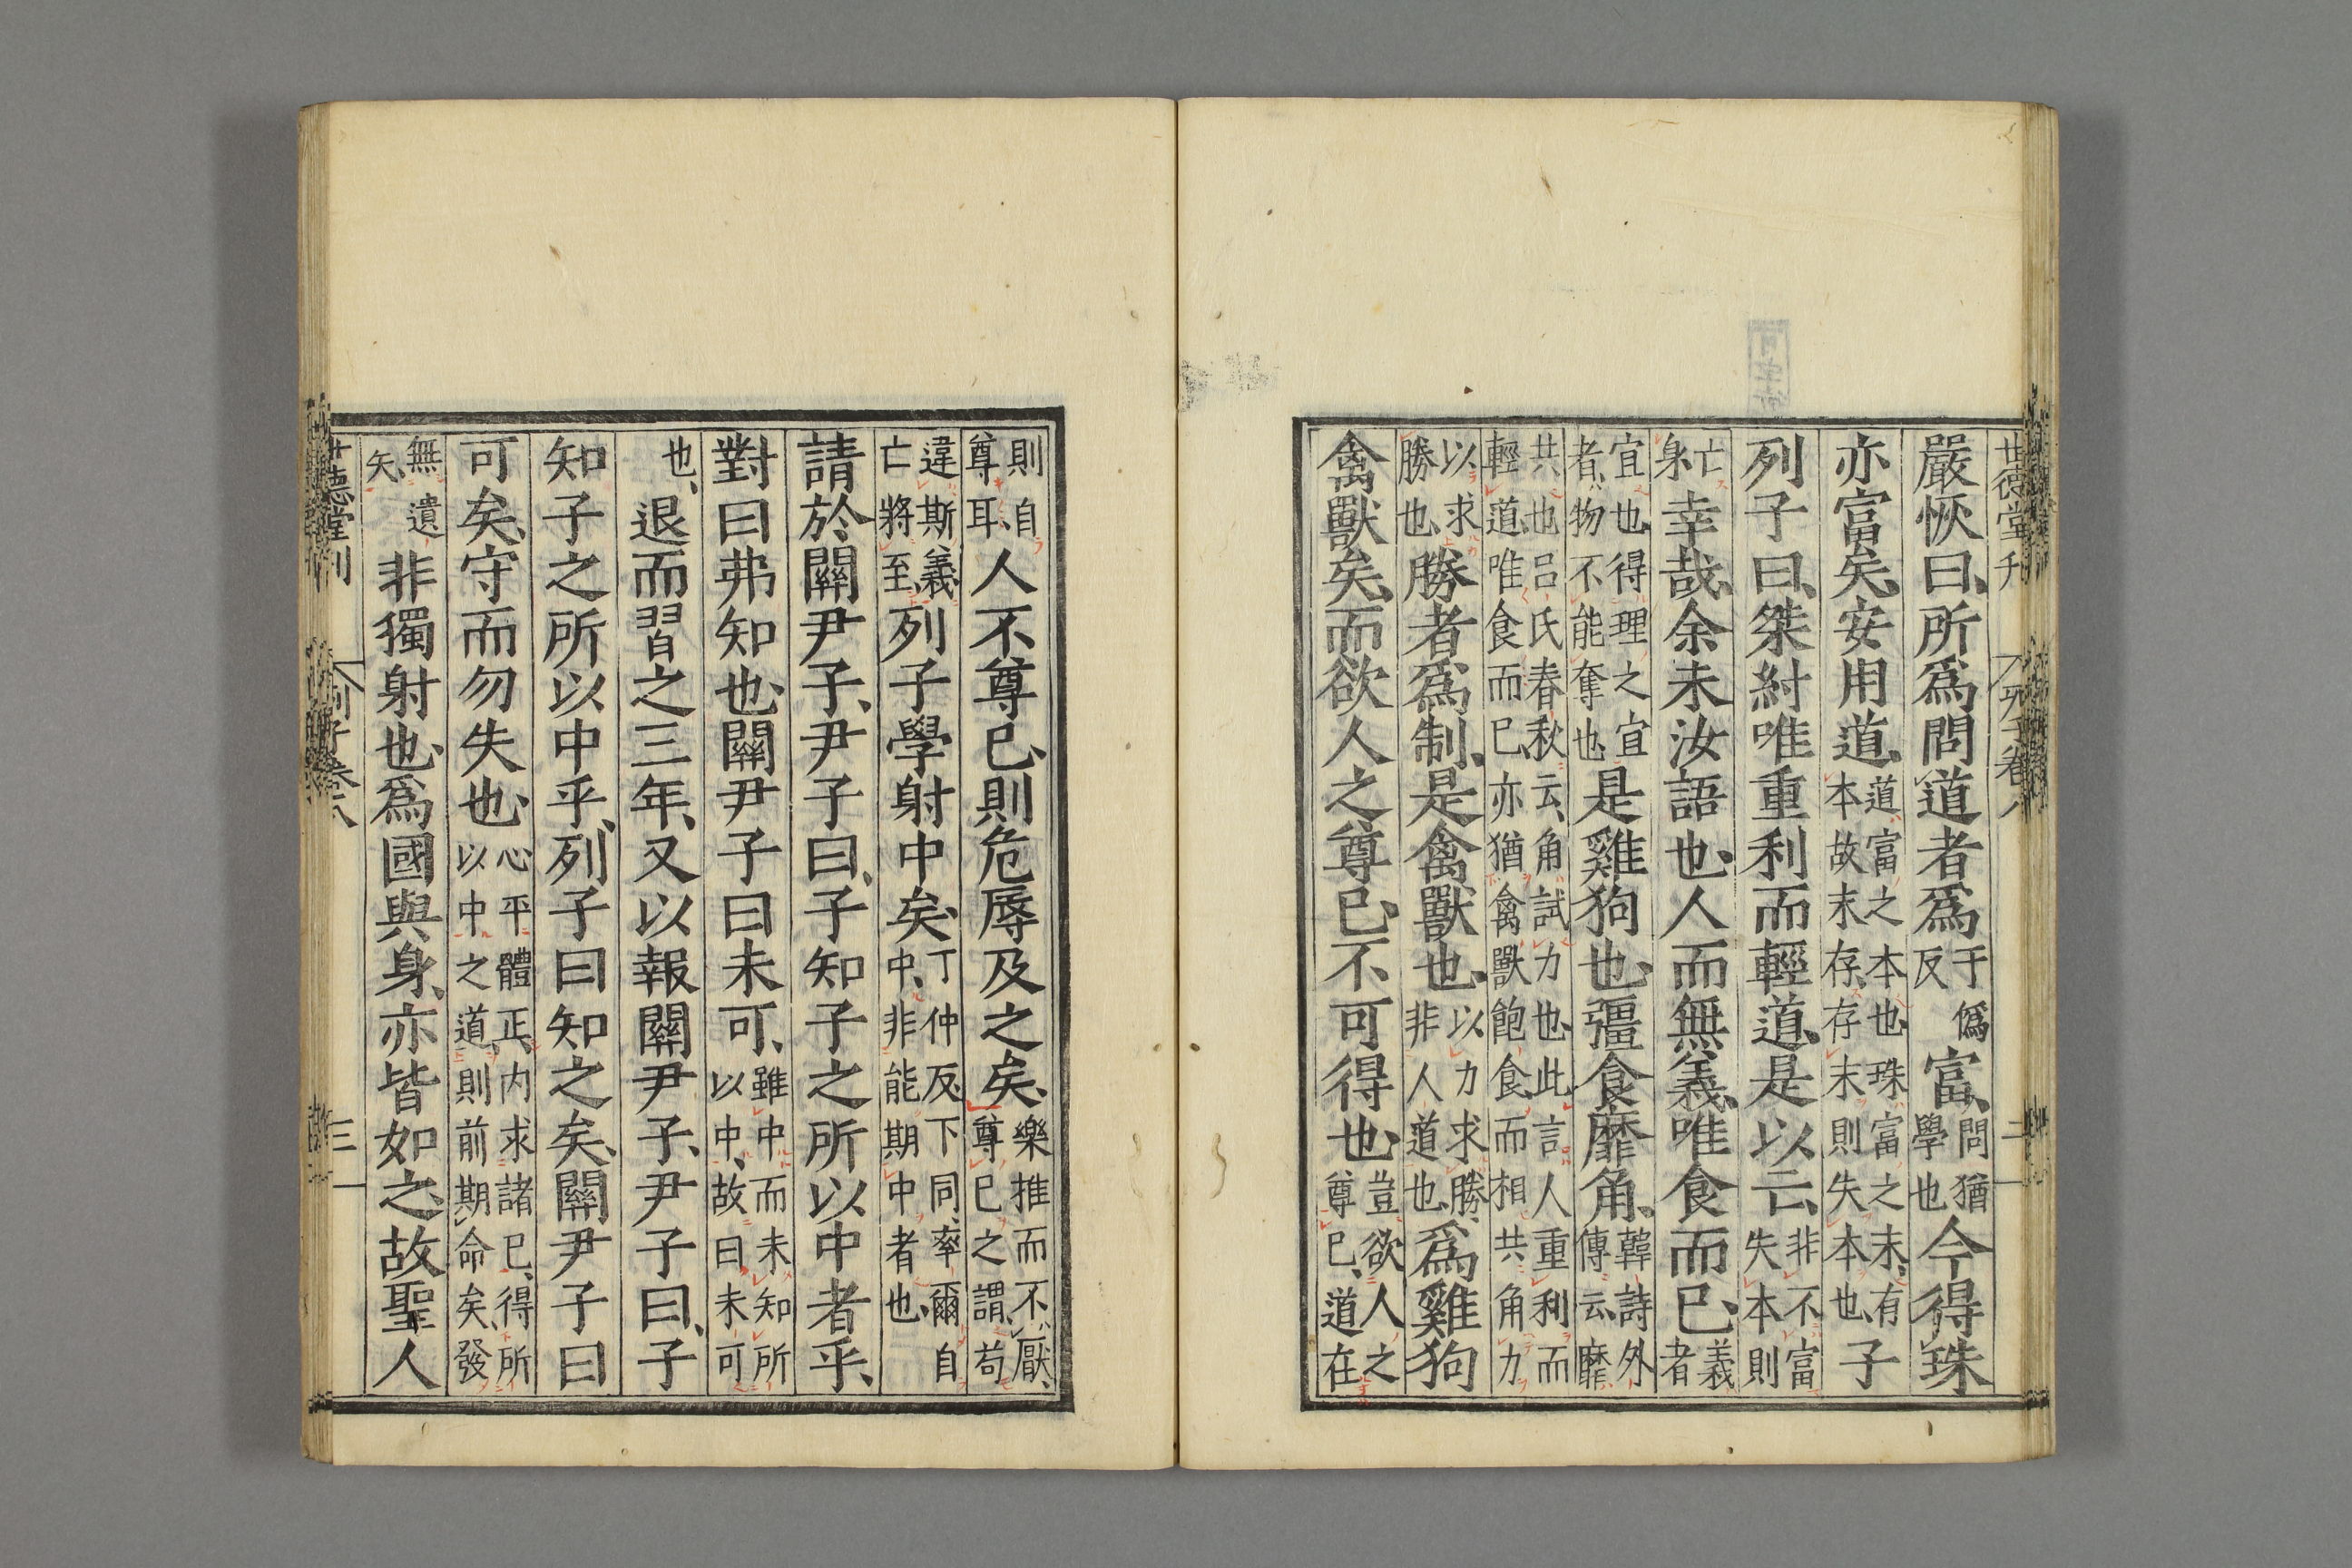 世德堂刊 列子卷八 二
嚴恢曰、所爲問道者爲于僞反富、問猶學也今得珠
亦富矣、安用道、道富之本也、珠富之末、有本故末存、存末則失本也、子
列子曰、桀紂唯重利而輕道、是以云、非不富失本則
亡身、幸哉、余未汝語也、人而無義、唯食而已、義者
宜也、得理之宜者、物不能奪也、是雞狗也、彊食靡角、韓詩外傳云、靡
共也、呂氏春秋云、角試力也、此言人重利而輕道、唯食而已、亦猶禽獸飽食而相共角力
以求勝也、勝者爲制、是禽獸也、以力求勝、非人道也、爲雞狗
禽獸矣、而欲人之尊己、不可得也、豈欲人之尊己、道在
則自尊耳、人不尊己、則危辱及之矣、樂推而不厭、尊己之謂、苟
違斯義、亡將至、列子學射中矣、丁仲反、下同、率爾自中、非能期中者也、
請於關尹子、尹子曰、子知子之所以中者乎、
對曰弗知也、關尹子曰未可、雖中而未知所以中、故曰未可
也、退而習之三年、又以報關尹子、尹子曰、子
知子之所以中乎、列子曰知之矣、關尹子曰
可矣、守而勿失也、心平體正、内求諸己、得所以中之道、則前期命矣、發
無遺矣、非獨射也、爲國與身、亦皆如之、故聖人
世德堂刊 列子卷八 三